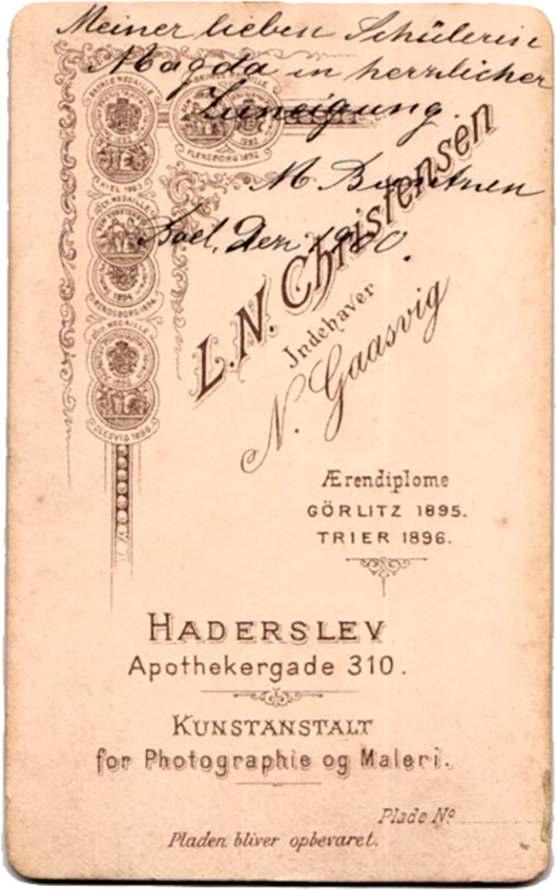 Meiner lieben Schülerin
Magda in herzlicher
Zuneigung.
M
den 1900.
BRONCE MEDAILLE
KIEL 1893.
FLENSBORG 1892
SØLV MEDAILLE
1894
RENDSBORG 1894.
SØLV MEDAILLE
SLESVIG 1896.
L. N. Christensen
Indehaver
N. Gaasvig
Ærendiplome
GÖRLITZ 1895.
TRIER 1896.
HADERSLEV
Apothekergade 310.
KUNSTANSTALT
for Photographie og Maleri.
Plade No
Pladen bliver opbevaret.